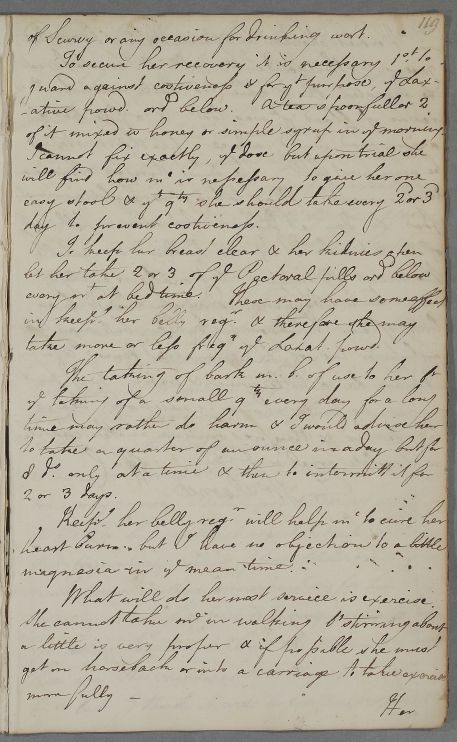 119
of Scurvy or any occasion for drinking wort.
To secure her recovery it is necessary 1st to
guard against costiveness & for yt purpose, ye Lax-
-ative powd. ord below. A tea spoonfull or 2
of it mixed w honey or simple syrup in ye morning
I cannot fix exactly, ye dose but upon trial she
will find how mc is necessary to give her one
easy stool & yt qty she should take every 2d or 3d
day to prevent costiveness.
To keep her breast clear & her kidnies open
let her take 2 or 3 of ye Pectoral pills ord below
every nt at bed time. These may have some effect
in keepg her belly regr. & therefore she may
take more or less freqy ye Laxat. powd.
The taking of bark m. b. of use to her bt
ye taking of a small qty every day for a long
time may rathr do harm & I would advise her
to take a quarter of an ounce in a day but for
8 ds. only at a time & then to intermitt it for
2 or 3 days.
Keepg. her belly regr will help mc to cure her
heart burn. but I have no objection to a little
magnesia in ye mean time.
What will do her most service is exercise.
She cannot take mc in walking bt stirring about
a little is very proper & if possible she must
get on horseback or into a carriage to take exercise
more fully —
Her